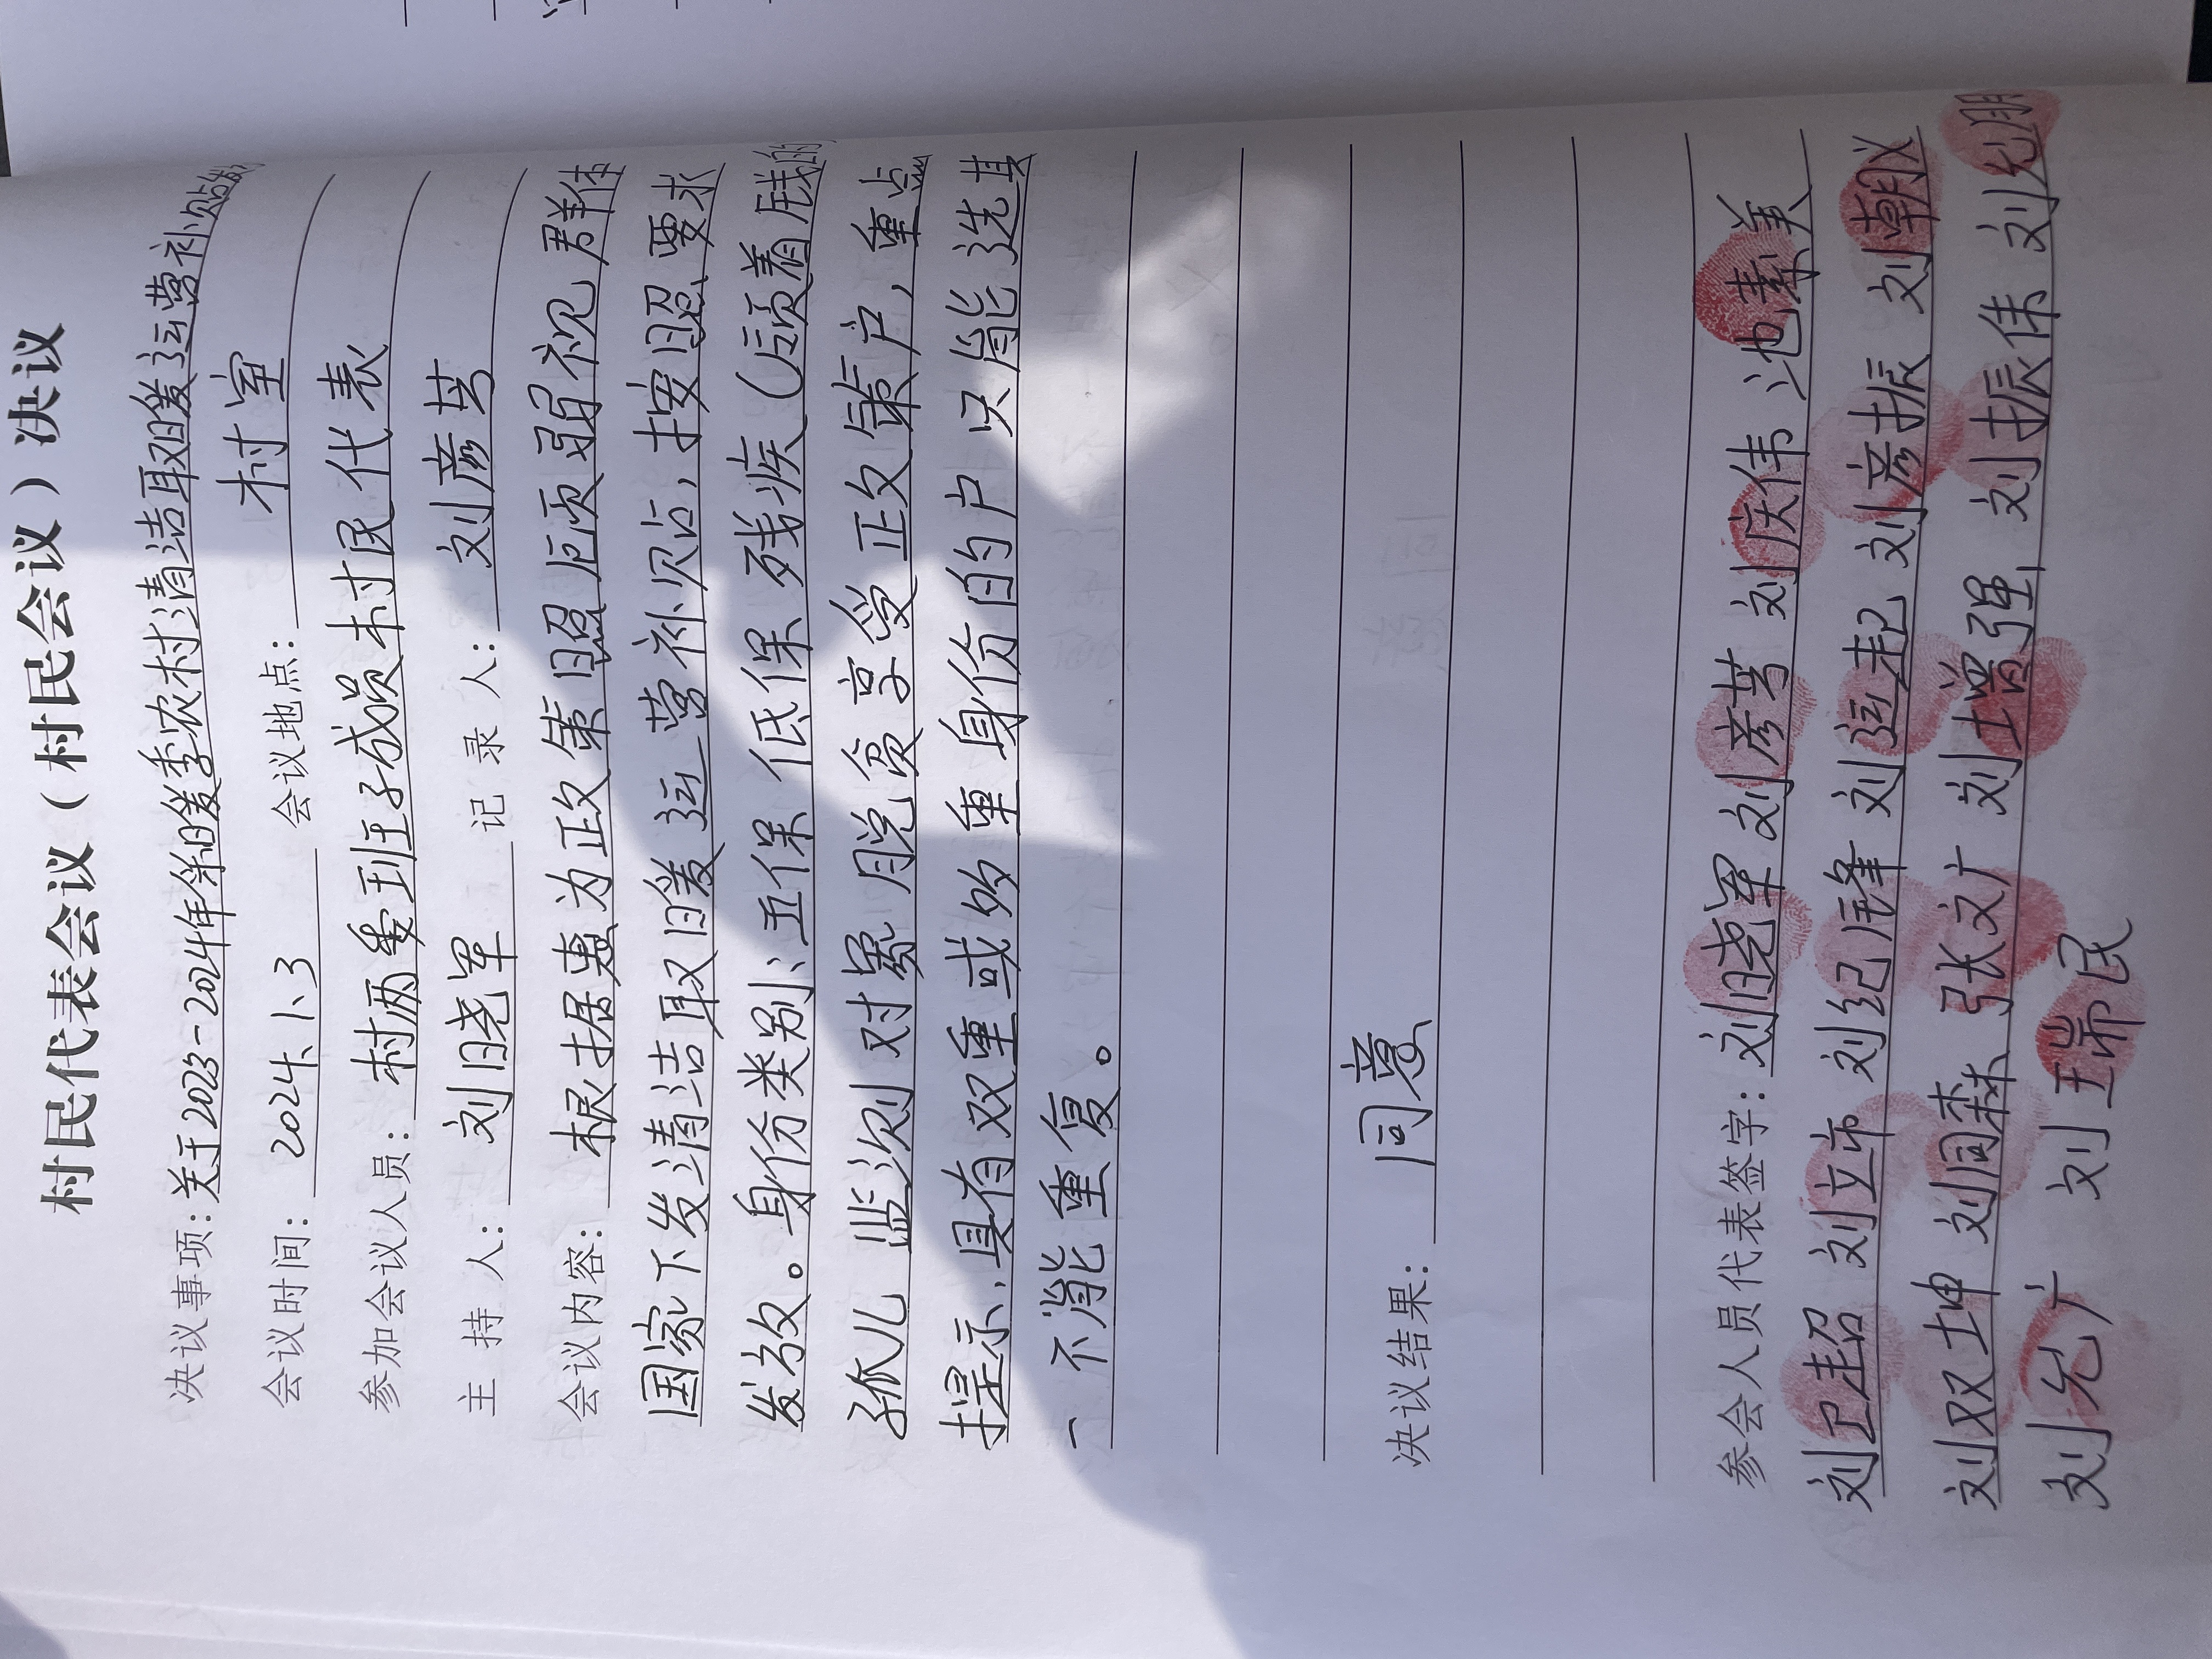 村民代表会议（村民会议）决议
决议事项：关于2023-2024年采暖季农村清洁取暖运营补贴发
会议时间：2024、1、3 会议地点：村室
参加会议人员：村两委班子成员村民代表
主持人：刘晓军 记录人：刘彦芳
会议内容：根据惠为政策照顾弱视群体
国家下发清洁取暖运营补贴，按照要求
发放。身份类别：五保 低保 残疾（领着钱的）
孤儿 监测对象 脱贫享受政策户，重点
提示，具有双重或多重身份的户只能选其
一 不能重复。
决议结果：同意
参会人员代表签字：刘晓军 刘彦芳 刘庆伟 池素美
刘卫超 刘立市 刘纪锋 刘运起 刘彦振 刘朝义
刘双坤 刘同森 张文广 刘增强 刘振伟 刘允朋
刘允广 刘瑞民